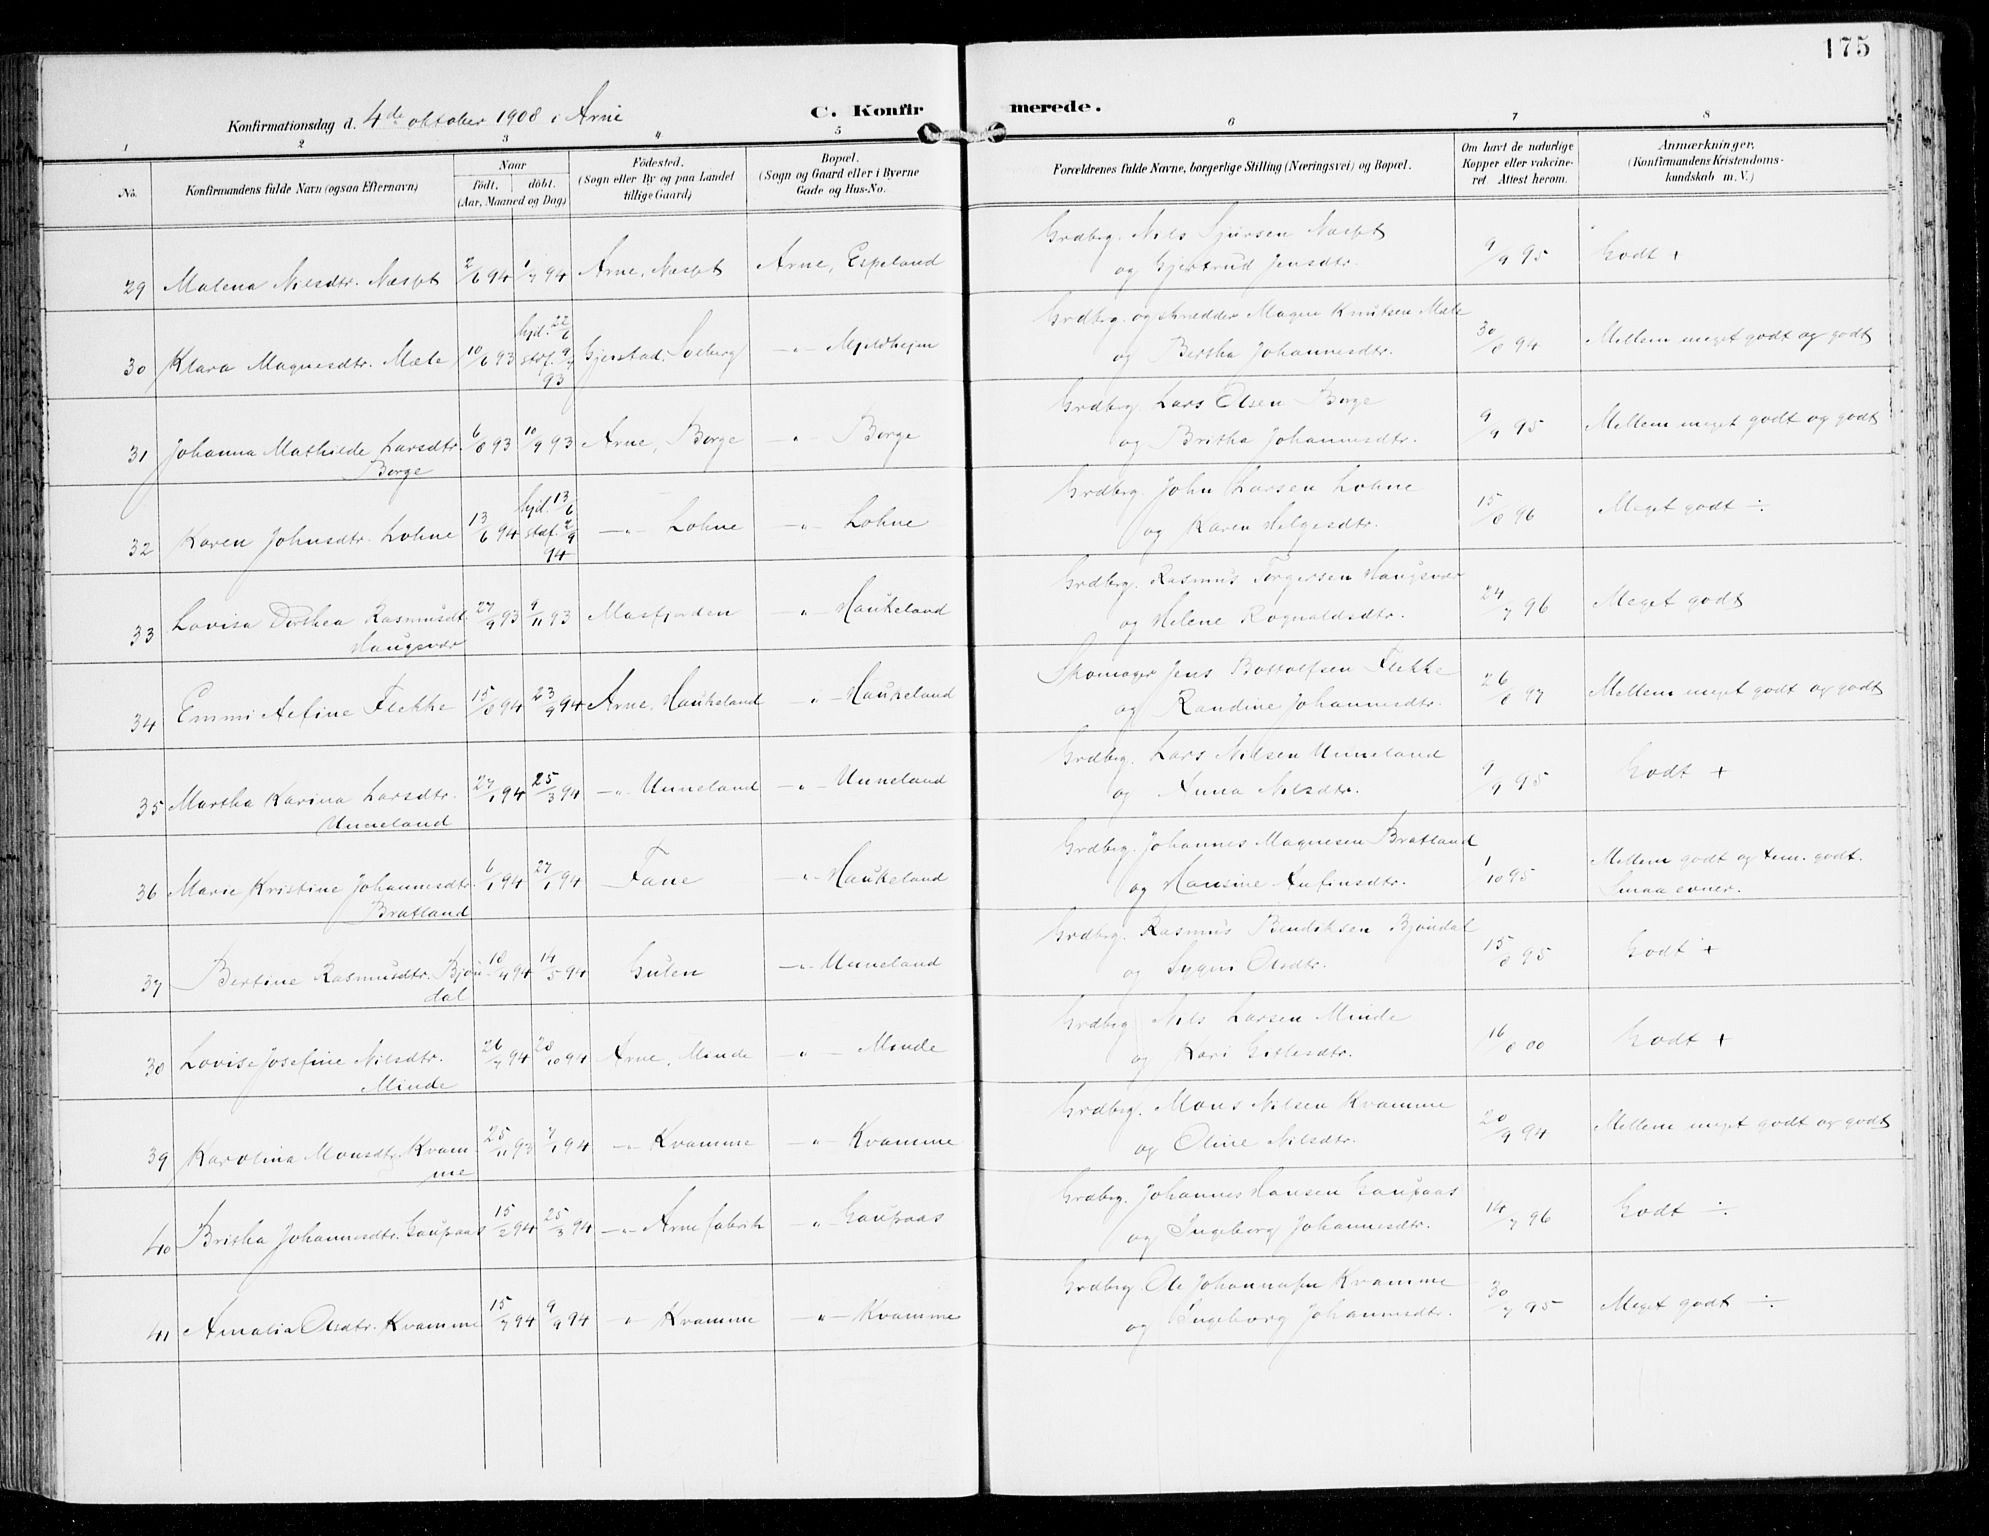 175
Konfirmationsdag d. 4de oktober 1908 i Arne
C. Konfirmerede.
1 2 3 4 5 6 7 8
No. Konfirmandens fulde Navn (ogsaa Efternavn) Naar født. døbt. (Aar, Maaned og Dag) Fødested. (Sogn eller By og paa Landet tillige Gaard) Bopæl. (Sogn og Gaard eller i Byerne Gade og Hus-No. Forældrenes fulde Navne, borgerlige Stilling (Næringsvei) og Bopæl. Om havt de naturlige Kopper eller vakcineret. Attest herom. Anmærkninger. (Konfirmandens Kristendomskundskab m. V.)
Grdbrg. Nils Sjursen Næsset
29 Malena Nilsdtr. Næsset 2/6 94 1/7 94 Arne, Næsset Arne, Espeland og Gjertrud Jensdtr. 9/9 95 Godt +
Grdbrg. og skrædder Magne Knutsen Mæle
30 Klara Magnesdtr. Mæle 10/6 93 hjd. 22/6 stdf. 9/7 93 Gjerstad, Soeberg -"- Mjeldhejen og Bertha Johannesdtr. 30/8 94 Mellem meget godt og godt
Grdbrg. Lars Olsen Borge
31 Johanna Mathilde Larsdtr. 6/8 93 10/9 93 Arne, Borge -"- Borge og Britha Johannesdtr. 9/9 95 Mellem meget godt og godt
Borge
Grdbrg. John Larsen Lohne
32 Karen Johnsdtr. Lohne 13/6 94 hjd. 13/6 stdf. 2/9 94 -"- Lohne -"- Lohne og Karen Helgesdtr. 15/8 96 Meget godt ÷
Grdbrg. Rasmus Torgersen Haugsvær
33 Lovisa Dorthea Rasmusdt. 27/9 93 9/11 93 Masfjorden -"- Haukeland og Helene Rognaldsdtr. 24/7 96 Meget godt
Haugsvær
Skomager Jens Bottolfsen Flekke
34 Emmi Aefine Flekke 15/8 94 23/9 94 Arne, Haukeland -"- Haukeland og Randine Johannesdtr. 26/8 97 Mellem meget godt og godt
Grdbrg. Lars Nilsen Unneland
35 Martha Karina Larsdtr. 27/1 94 25/3 94 -"- Unneland -"- Unneland og Anna Nilsdtr. 9/9 95 Godt +
Unneland
Grdbrg. Johannes Magnesen Bratland
36 Marie Kristine Johannesdtr. 6/1 94 27/1 94 Fane -"- Haukeland og Hansine Anfinsdtr. 1/10 95 Mellem godt og tem. godt. Smaa evner.
Bratland
Grdbrg. Rasmus Bendiksen Bjøndal
37 Bertine Rasmusdtr. Bjøndal 18/4 94 14/5 94 Gulen -"- Unneland og Sygni Olsdtr. 15/8 95 Godt +
Grdbrg. Nils Larsen Minde
38 Lovise Josefine Nilsdtr. 26/7 94 28/10 94 Arne, Minde -"- Minde og Kari Gittlesdtr. 16/8 00 Godt +
Minde
Grdbrg. Mons Nilsen Kvamme
39 Karolina Monsdtr. Kvamme 25/11 93 7/1 94 -"- Kvamme -"- Kvamme og Oline Nilsdtr. 20/9 94 Mellem meget godt og godt
Grdbrg. Johannes Hansen Gaupaas
40 Britha Johannesdtr. Gaupaas 15/2 94 25/3 94 -"- Arne fabrik -"- Gaupaas og Ingeborg Johannesdtr. 14/7 96 Godt ÷
Grdbrg. Ole Johannesen Kvamme
41 Amalia Olsdtr. Kvamme 15/7 94 9/9 94 -"- Kvamme -"- Kvamme og Ingeborg Johannesdtr. 30/7 95 Meget godt ÷